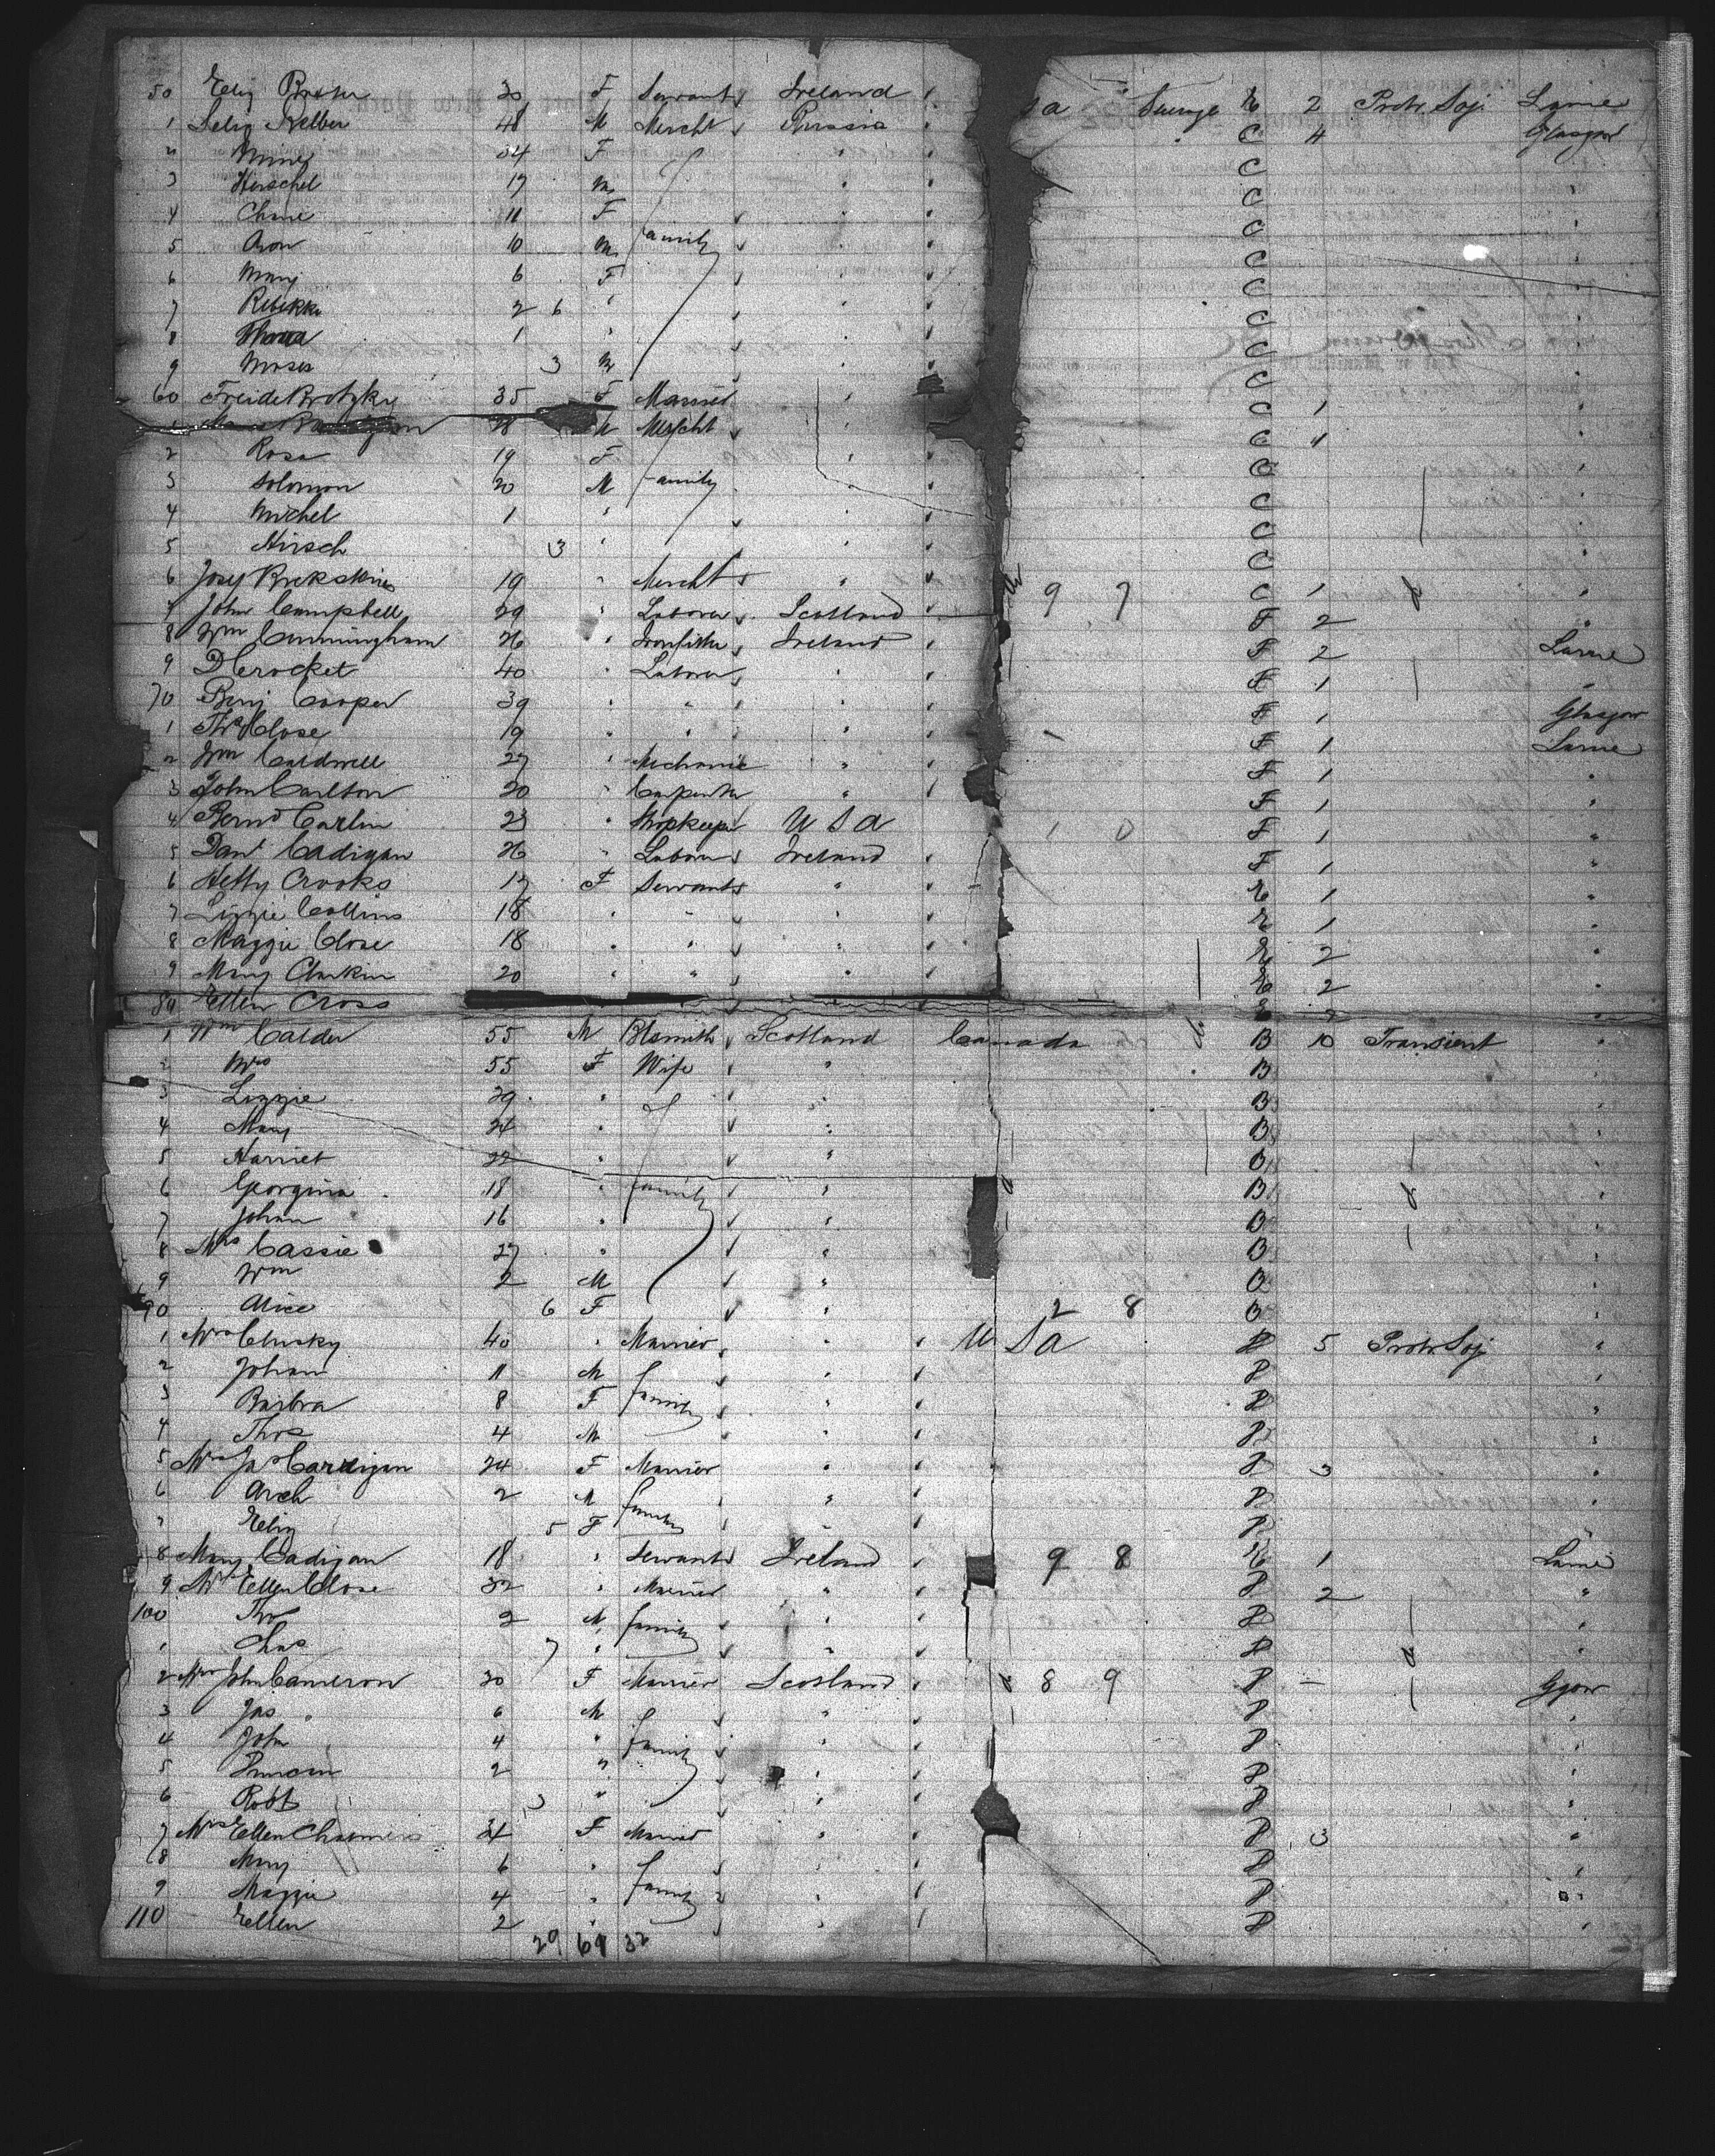 50 Eliz 30 F Servant Ireland S a E 2 Protr Soj Larne
1 Selig Kelber 48 M Mercht Russia " C 4 Glasgow
2 34 F " C
3 Herschel 17 M " C "
4 11 F " C "
5 Aron 10 M family " C "
6 Mary 6 F " C "
7 Rebekka 2 6 " " C "
8 1 " " C "
9 Moses 3 M " C "
60 Freide 35 F Married C 1 "
28 M Mercht C 4 "
2 Rosa 19 F " C "
3 Solomon 20 M family " C "
4 Michel 1 " " C "
5 Hirsch 3 " " C "
6 Josef 19 " Mercht " 9 7 C 1 "
7 John Campbell 29 " Laborer Scotland F 2 "
8 Wm Cunningham 26 " Ireland F 2 Larne
9 D Crocket 40 " Laborer " F 1 "
70 Benj Cooper 39 " " " F 1 Glasgow
1 Thos Close 19 " " " F 1 Larne
2 Wm Caldwell 27 " Mechanic " F 1 "
3 John Carlton 20 " Carpenter " F 1 "
4 Bernd Carlin 23 " Shopkeeper U S A 1 0 F 1 "
5 Danl Cadigan 26 " Laborer Ireland F 1 "
6 Hetty Crooks 17 F Servant " E 1 "
7 Lizzie Collins 18 " " " E 1 "
8 Maggie Close 18 " " " E 2 "
9 Mary Clarkin 20 " " " E 2 "
80 Ellen Cross E "
1 Wm Calder 55 M Blksmith Scotland Canada B 10 Transient "
2 Mrs 55 F Wife " B "
3 Lizzie 29 " " B "
4 Mary 24 " " B "
5 Harriet 22 " " B "
6 Georgina 18 " family " B "
7 Johan 16 " " B "
8 Mrs Cassie 27 " " B "
9 Wm 2 M " B "
90 Alice 6 F " 2 8 B "
1 Mrs Clusky 40 " Married " U S A P 5 Protr Soj "
2 Johan 11 M family " P "
3 Barbra 8 F " P "
4 Thos 4 M " P "
5 Mrs Jas Cardigan 24 F Married " P 3 "
6 Arch 2 M family " P "
7 Eliz 5 F " P
8 Mary Cadigan 18 " Servant Ireland 9 8 E 1 Larne
9 Mrs Ellen Close 32 " Married " P 2 "
100 Thos 2 M family " P "
1 Chas 7 " " P "
2 Mrs John Cameron 30 F Married Scotland 8 9 P - Ggow
3 Jas 6 M " P "
4 John 4 " family " P "
5 Duncan 2 " " P "
6 Robt 3 " " P "
7 Mrs Ellen Chalmers 24 F Married " P 3 "
8 Mary 6 " family " P "
9 Maggie 4 " " P "
110 Ellen 2 " " P "
29 61 32